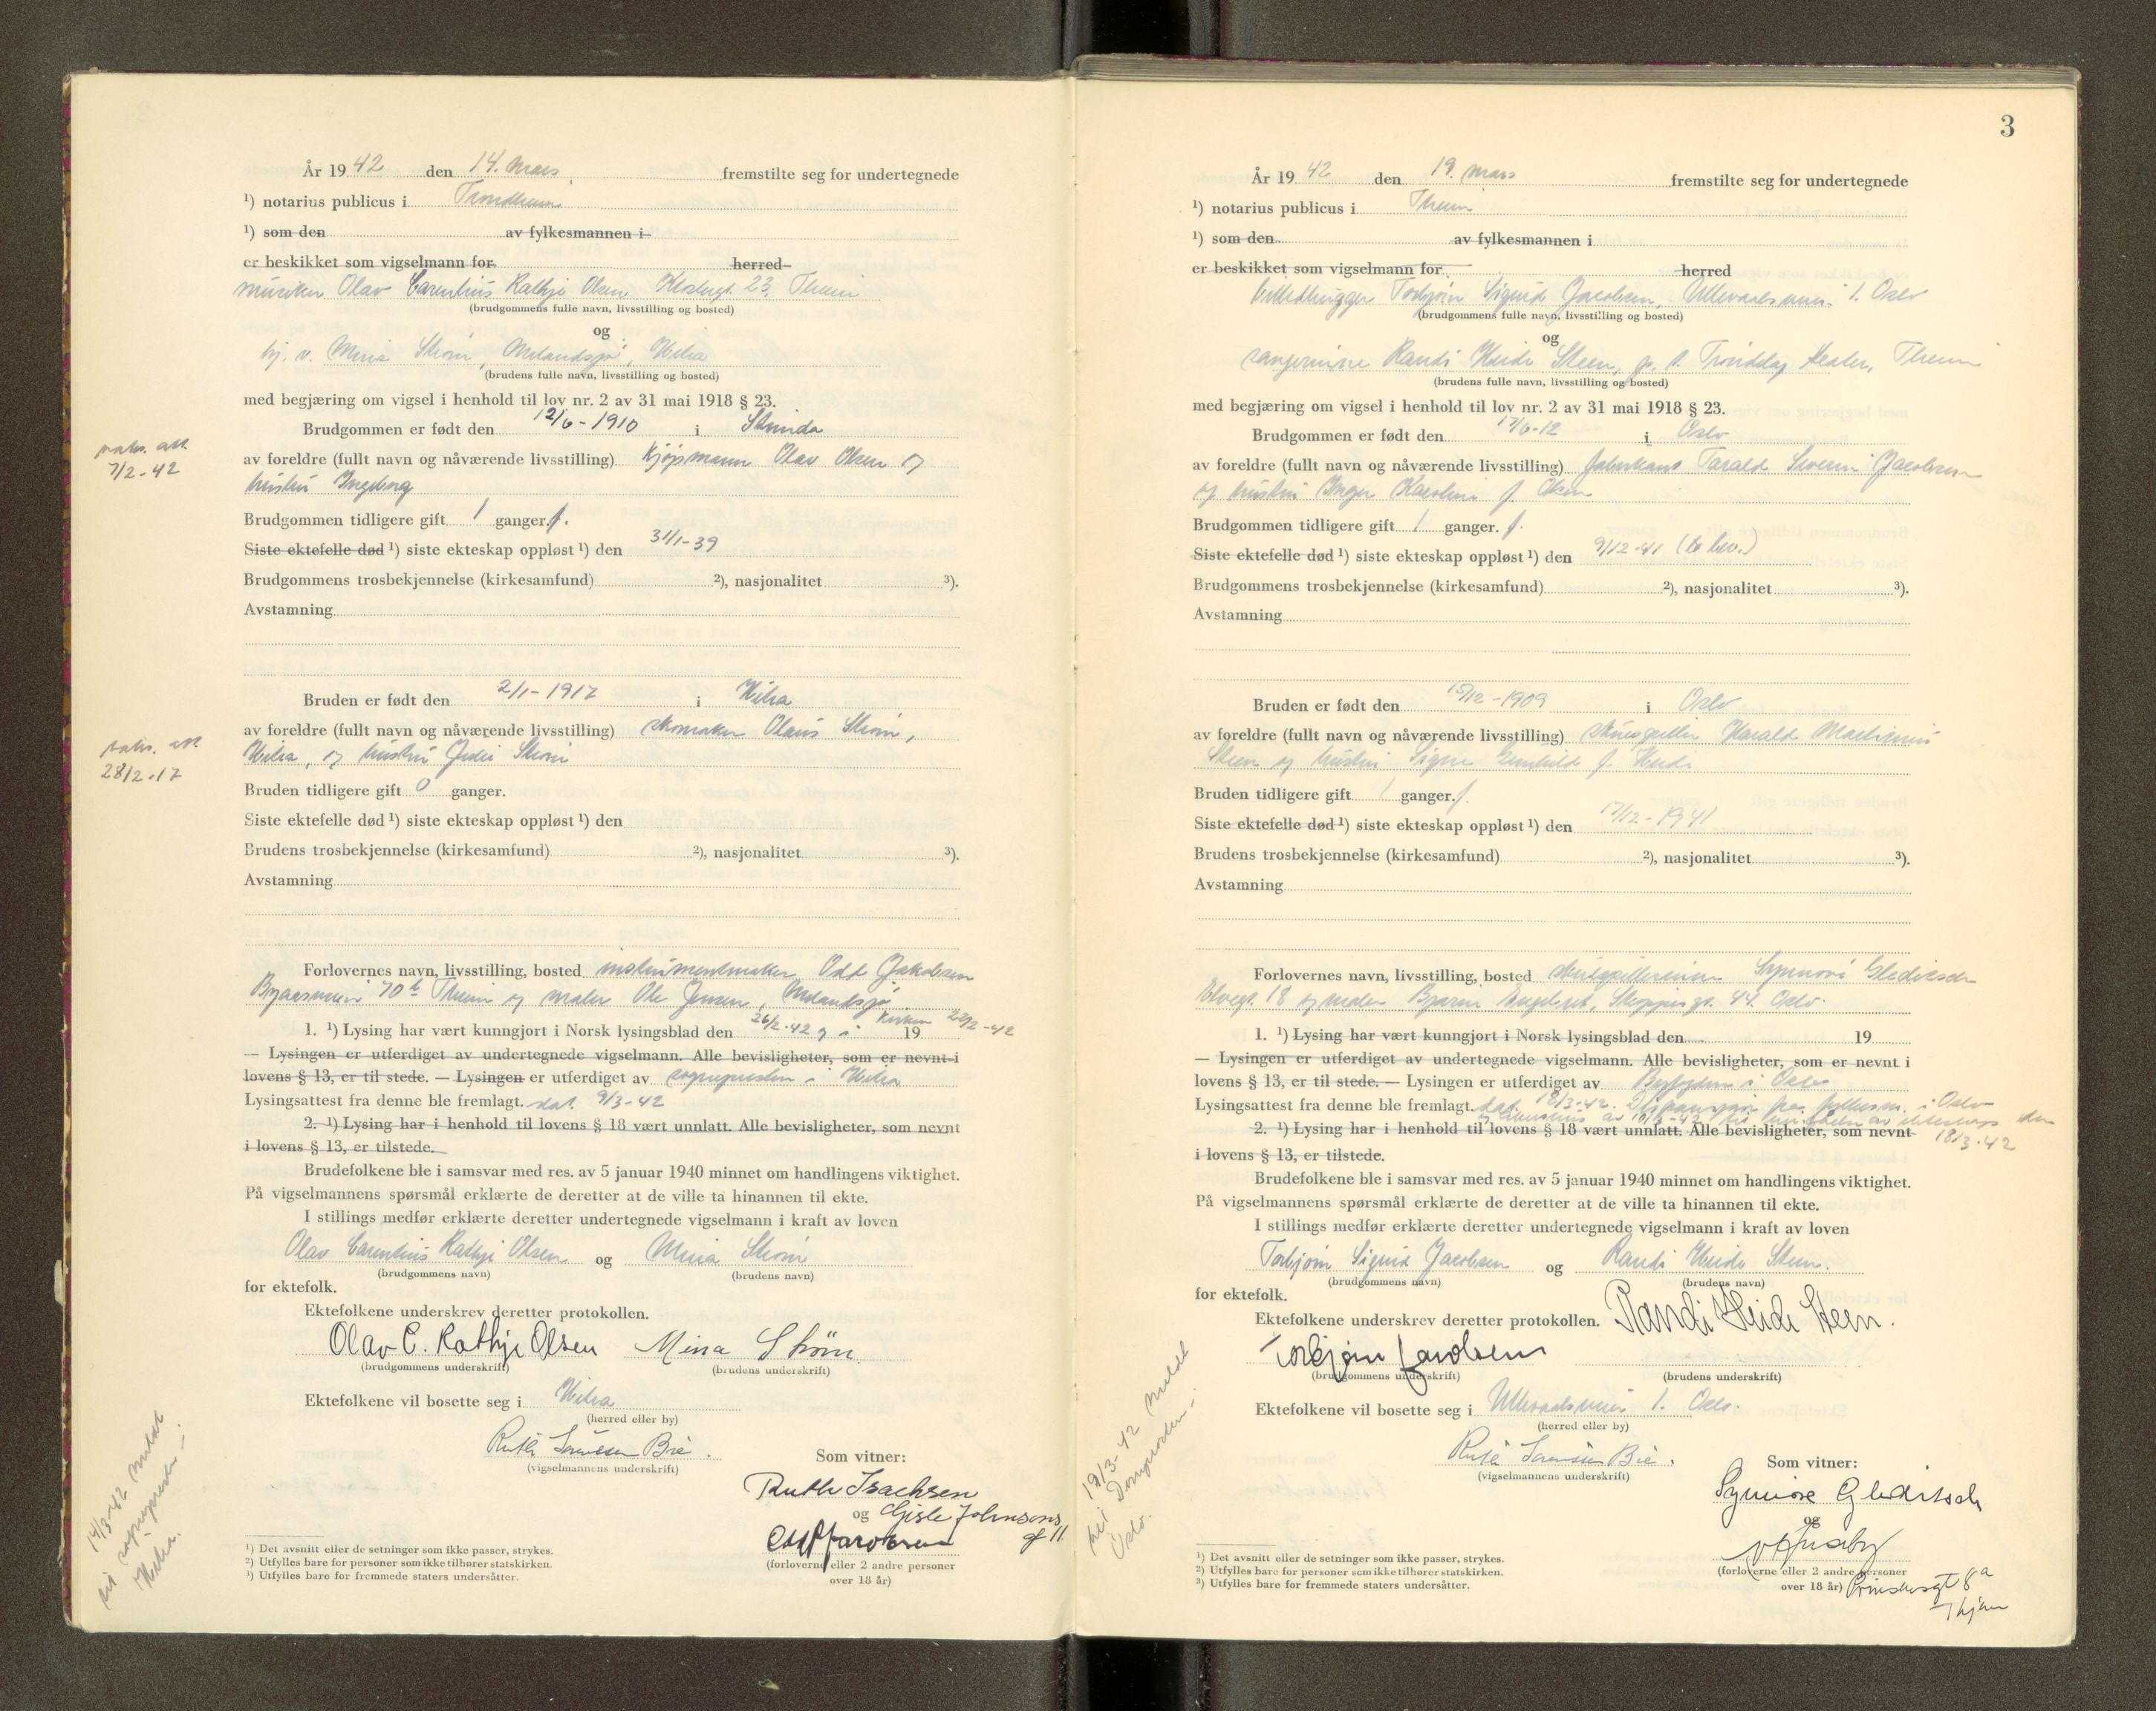 År 1942 den 14. mars fremstilte seg for undertegnede
¹) notarius publicus i Trondheim
¹) som den av fylkesmannen i
er beskikket som vigselmann for herred
musiker Olav Carentius Rathje Olsen 23, Theim
(brudgommens fulle navn, livsstilling og bosted)
og
hj. v. Mina Strøm, Melandsjø, Hitra
(brudens fulle navn, livsstilling og bosted)
med begjæring om vigsel i henhold til lov nr. 2 av 31 mai 1918 § 23.
Brudgommen er født den 12/6-1910 i Strinda
av foreldre (fullt navn og nåværende livsstilling) kjøpmann Olav Olsen og
hustru Ingeborg
Brudgommen tidligere gift 1 ganger. f.
Siste ektefelle død ¹) siste ekteskap oppløst ¹) den 31/1-39
Brudgommens trosbekjennelse (kirkesamfund) ²), nasjonalitet ³).
Avstamning
vaks. att.
7/2-42
Bruden er født den 2/1-1917 i Hitra
av foreldre (fullt navn og nåværende livsstilling) skomaker Olaus Strøm,
Hitra, og hustru Strøm
Bruden tidligere gift 0 ganger.
Siste ektefelle død ¹) siste ekteskap oppløst ¹) den
Brudens trosbekjennelse (kirkesamfund) ²), nasjonalitet ³).
Avstamning
vaks. att.
28/2-17
Forlovernes navn, livsstilling, bosted instrumentmaker Odd Jakobsen
70 b Theim og maler Ole Jensen, Melandsjø
1. ¹) Lysing har vært kunngjort i Norsk lysingsblad den 26/2-42 og i kirken 22/2-42 19
— Lysingen er utferdiget av undertegnede vigselmann. Alle bevisligheter, som er nevnt i
lovens § 13, er til stede. — Lysingen er utferdiget av sognepresten i Hitra
Lysingsattest fra denne ble fremlagt. dat. 9/3-42
2. ¹) Lysing har i henhold til lovens § 18 vært unnlatt. Alle bevisligheter, som nevnt
i lovens § 13, er tilstede.
Brudefolkene ble i samsvar med res. av 5 januar 1940 minnet om handlingens viktighet.
På vigselmannens spørsmål erklærte de deretter at de ville ta hinannen til ekte.
I stillings medfør erklærte deretter undertegnede vigselmann i kraft av loven
Olav Carentius Rathje Olsen og Mina Strøm
(brudgommens navn) (brudens navn)
for ektefolk.
Ektefolkene underskrev deretter protokollen.
Olav C. Rathje Olsen Mina Strøm
(brudgommens underskrift) (brudens underskrift)
Ektefolkene vil bosette seg i Hitra
(herred eller by)
Ruth Sørenssen Bie.
(vigselmannens underskrift)
Som vitner:
Ruth Isachsen
og Gisle Johnsons
gt 11
Odd Jacobsen
(forloverne eller 2 andre personer
over 18 år)
14/3-42 meldt
til sognepresten i
Hitra.
¹) Det avsnitt eller de setninger som ikke passer, strykes.
²) Utfylles bare for personer som ikke tilhører statskirken.
³) Utfylles bare for fremmede staters undersåtter.
3
År 1942 den 19. mars fremstilte seg for undertegnede
¹) notarius publicus i Theim
¹) som den av fylkesmannen i
er beskikket som vigselmann for herred
billedhugger Torbjørn Sigurd Jacobsen, Ullevaalsveien 1. Oslo
(brudgommens fulle navn, livsstilling og bosted)
og
sangerinne Randi Heide Steen, p. t. Trøndelag teater, Theim
(brudens fulle navn, livsstilling og bosted)
med begjæring om vigsel i henhold til lov nr. 2 av 31 mai 1918 § 23.
Brudgommen er født den 17/6-12 i Oslo
av foreldre (fullt navn og nåværende livsstilling) Tarald Severin Jacobsen
og hustru Inger Karoline f. Olsen
Brudgommen tidligere gift 1 ganger. f.
Siste ektefelle død ¹) siste ekteskap oppløst ¹) den 9/12-41 (to bev.)
Brudgommens trosbekjennelse (kirkesamfund) ²), nasjonalitet ³).
Avstamning
Bruden er født den 15/12-1909 i Oslo
av foreldre (fullt navn og nåværende livsstilling) skuespiller Harald Martinius
Steen og hustru Signe f. Heide
Bruden tidligere gift 1 ganger. f.
Siste ektefelle død ¹) siste ekteskap oppløst ¹) den 17/12-1941
Brudens trosbekjennelse (kirkesamfund) ²), nasjonalitet ³).
Avstamning
Forlovernes navn, livsstilling, bosted skuespillerinne Synnøve Gleditsch
18 og maler Bjarne Engebret, 44. Oslo.
1. ¹) Lysing har vært kunngjort i Norsk lysingsblad den 19
— Lysingen er utferdiget av undertegnede vigselmann. Alle bevisligheter, som er nevnt i
lovens § 13, er til stede. — Lysingen er utferdiget av Byfogden i Oslo
Lysingsattest fra denne ble fremlagt. dat. 18/3-42. Dispensasjon fra fylkesm. i Oslo
og av 10/3-42 av ekteskap den
18/3-42
2. ¹) Lysing har i henhold til lovens § 18 vært unnlatt. Alle bevisligheter, som nevnt
i lovens § 13, er tilstede.
Brudefolkene ble i samsvar med res. av 5 januar 1940 minnet om handlingens viktighet.
På vigselmannens spørsmål erklærte de deretter at de ville ta hinannen til ekte.
I stillings medfør erklærte deretter undertegnede vigselmann i kraft av loven
Torbjørn Sigurd Jacobsen og Randi Heide Steen.
(brudgommens navn) (brudens navn)
for ektefolk.
Ektefolkene underskrev deretter protokollen. Randi Heide Steen.
Torbjørn Jacobsen
(brudgommens underskrift) (brudens underskrift)
Ektefolkene vil bosette seg i Ullevaalsveien 1. Oslo.
(herred eller by)
Ruth Sørenssen Bie.
(vigselmannens underskrift)
Som vitner:
Synnøve Gleditsch
og
(forloverne eller 2 andre personer
over 18 år) Prinsensgt 8a
Thjem
19/3-42 meldt
til Domprosten i
Oslo.
¹) Det avsnitt eller de setninger som ikke passer, strykes.
²) Utfylles bare for personer som ikke tilhører statskirken.
³) Utfylles bare for fremmede staters undersåtter.